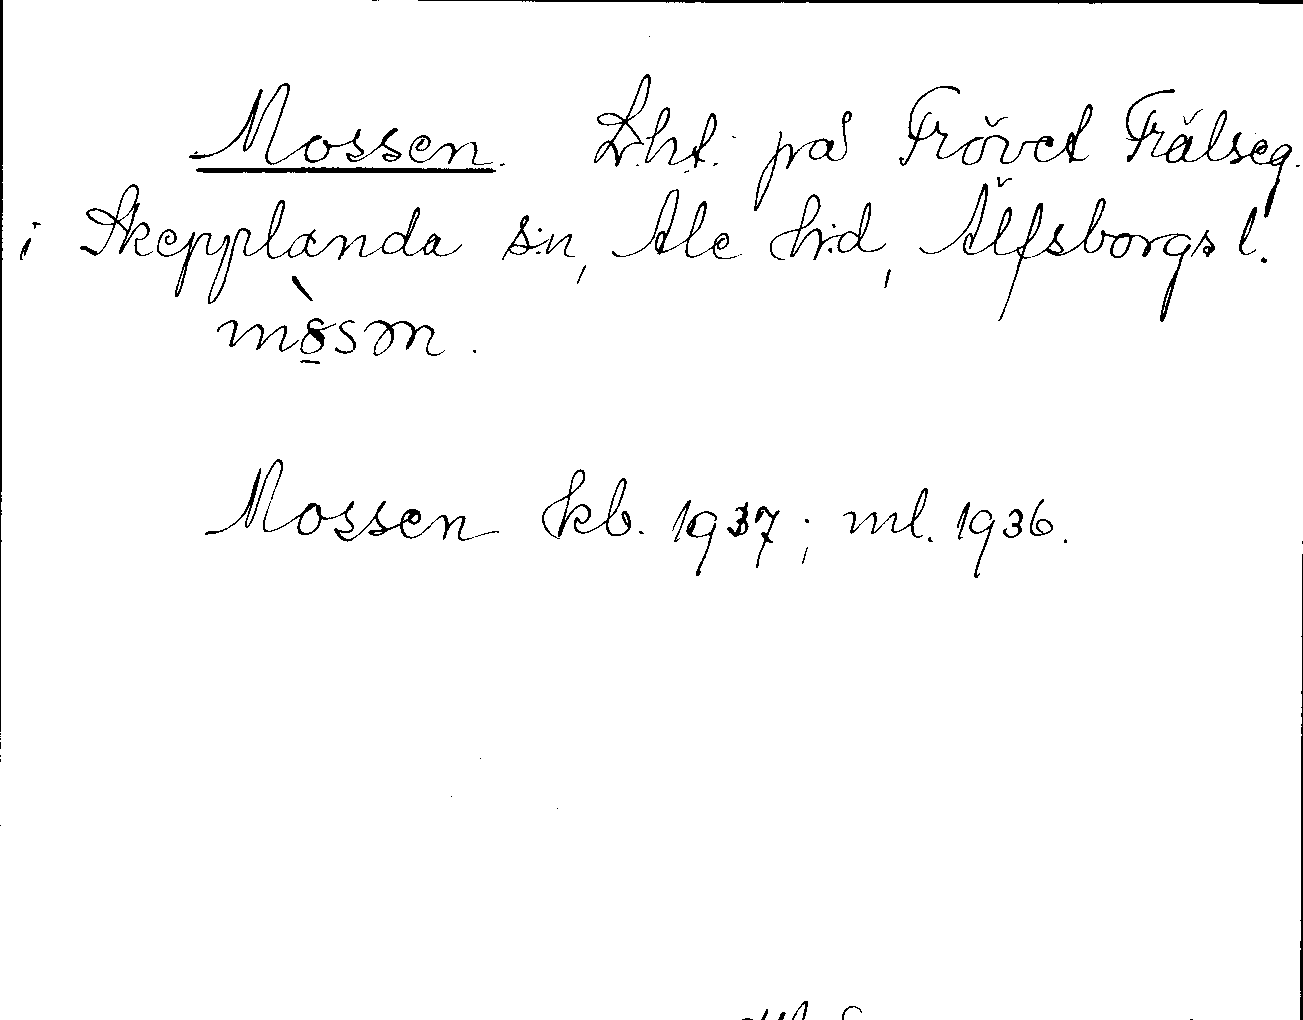 Mossen. L:ht. på Frövet Frälseg.
i Skepplanda s:n, Ale h:d, Älfsborgs l.
mòsən.
Mossen kb. 1937; ml. 1936.